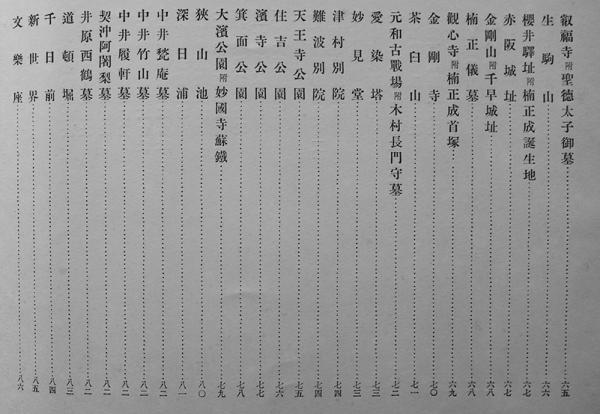 叡福寺附聖德太子御墓……六五
生駒山……六六
櫻井驛址附楠正成誕生地……六七
赤阪城址……六七
金剛山附千早城址……六八
楠正儀墓……六八
觀心寺附楠正成首塚……六九
金剛寺……七〇
茶臼山……七一
元和古戰場附木村長門守墓……七二
愛染塔……七三
妙見堂……七三
津村別院……七四
難波別院……七四
天王寺公園……七五
住吉公園……七六
濱寺公園……七七
箕面公園……七八
大濱公園附妙國寺蘇鐵……七九
狹山池……八〇
深日浦……八一
中井甃庵墓……八二
中井竹山墓……八二
中井履軒墓……八二
契沖阿闍梨墓……八二
井原西鶴墓……八二
道頓堀……八三
千日前……八四
新世界……八五
文樂座……八六